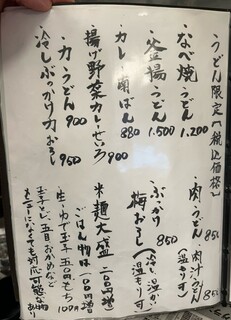 うどん限定【税込価格】
・なべ焼うどん 1.200
・釜揚うどん 1.500
・カレー南ばん 880
・揚げ野菜カレーせいろ 900
・力うどん 900
・冷しぶっかけ力おろし 950
・肉うどん 850
・肉汁うどん 850
(温もつけ)
・ぶっかけ梅おろし 850
(冷い、温かい)
(温もつけ)
※麺大盛 200円増
・ごはん物は100円増
・生、ゆで玉子50円 もち100円
玉子とじ、五目、おかめなど
メニューになくても対応可能な物あり